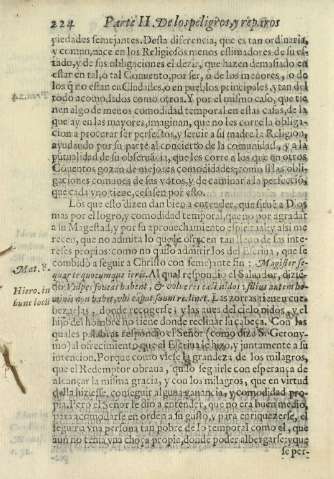 224 Parte II. De los peligros, y reparos
piedades semejantes. Desta diferencia, que es tan ordinaria,
y comun, nace en los Religiosos menos estimadores de su es-
tado, y de sus obligaciones el dezir, que hazen demasiado en
estar en tal, o tal Conuento, por ser, ò de los menores, ò de
los que no estan en Ciudades, ò en pueblos principales, y tan del
todo acomodados como otros. Y por el mismo caso, que tie-
nen algo de menos comodidad temporal en estas casas, de la
que ay en las mayores, imaginan, que no les corre la obliga-
cion a procurar ser perfectos, y seruir a su madre la Religion,
ayudando por su parte al concierto de la comunidad, y a la
puntualidad de su obseruãcia, que les corre a los que en otros
Conuentos gozan de mejores comodidades; como si las obli-
gaciones comunes de sus votos, y de caminar a la perfecciõ,
que cada vno tiene, cessassen por esto.
Los que esto dizen dan bien a entender, que siruẽ a Dios
mas por el logro, y comodidad temporal, que no por agradar
a su Magestad, y por su aprouechamiento espiritual: y assi me
recen, que no admita lo que le ofrecen tan lleno de sus inte-
reses proprios: como no quiso admitir los del Escriua, que se
Mat. 8. combidò a seguir a Christo con semejante fin: Magister se-
quar te quocumque ieris. Al qual respondio el Saluador, diziẽ-
Hiero. in do: Vulpes foueas habent, & volucres cæli nidos, filius autem ho-
hunc locũ minis non habet, vbi caput suum reclinet. Las zorras tienen cue-
bezas, donde recogerse; y las aues del cielo nidos, y el
hijo del hombre no tiene donde reclinar su cabeza. Con las
quales palabras respondio el Señor (como dize S. Gerony-
mo) al ofrecimiento, que el Escriua le hizo, y juntamente a su
intencion. Porque como viesse la grandeza de los milagros,
que el Redemptor obraua, quiso seguirle con esperança de
alcançar la misma gracia, y con los milagros, que en virtud
della hiziesse, conseguir alguna ganancia, y comodidad pro-
pia. Pero el Señor le dio a entender, que no era buen medio,
para acomodarse en orden a su gusto, y para enriquezerse, el
seguir a vna persona tan pobre de lo temporal como el, que
aun no tenia vna choça propie, donde poder albergarse: y que
se per-